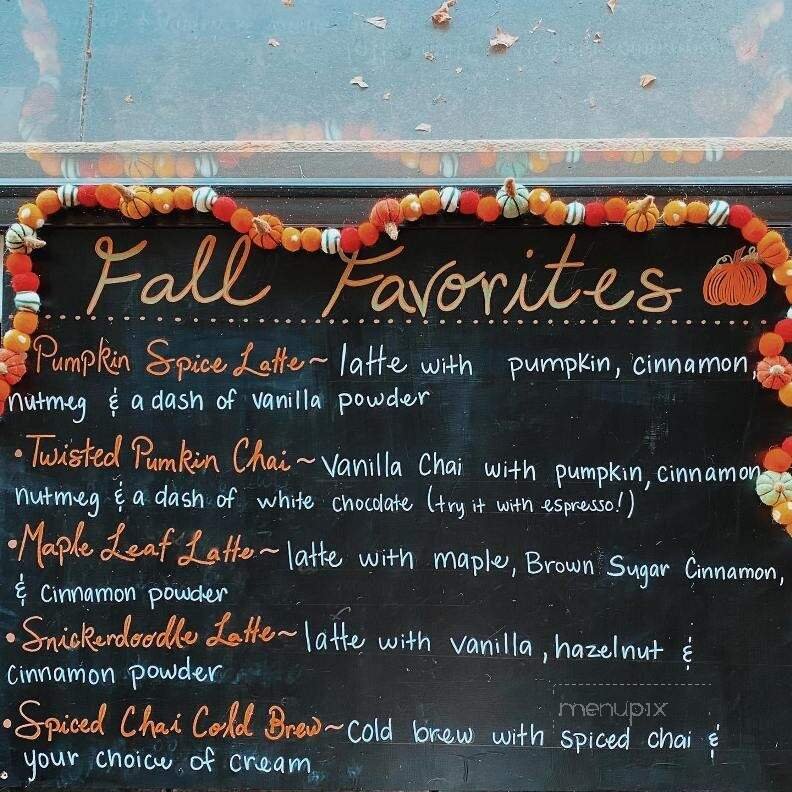 Fall Favorites
Pumpkin Spice Latte ~ latte with pumpkin, cinnamon,
nutmeg & a dash of vanilla powder
• Twisted Pumkin Chai ~ Vanilla Chai with pumpkin, cinnamon
nutmeg & a dash of white chocolate (try it with espresso!)
• Maple Leaf Latte ~ latte with maple, Brown Sugar Cinnamon,
& Cinnamon powder
• Snickerdoodle Latte ~ latte with vanilla, hazelnut &
Cinnamon powder
• Spiced Chai Cold Brew ~ Cold brew with spiced chai &
your choice of cream
menupix